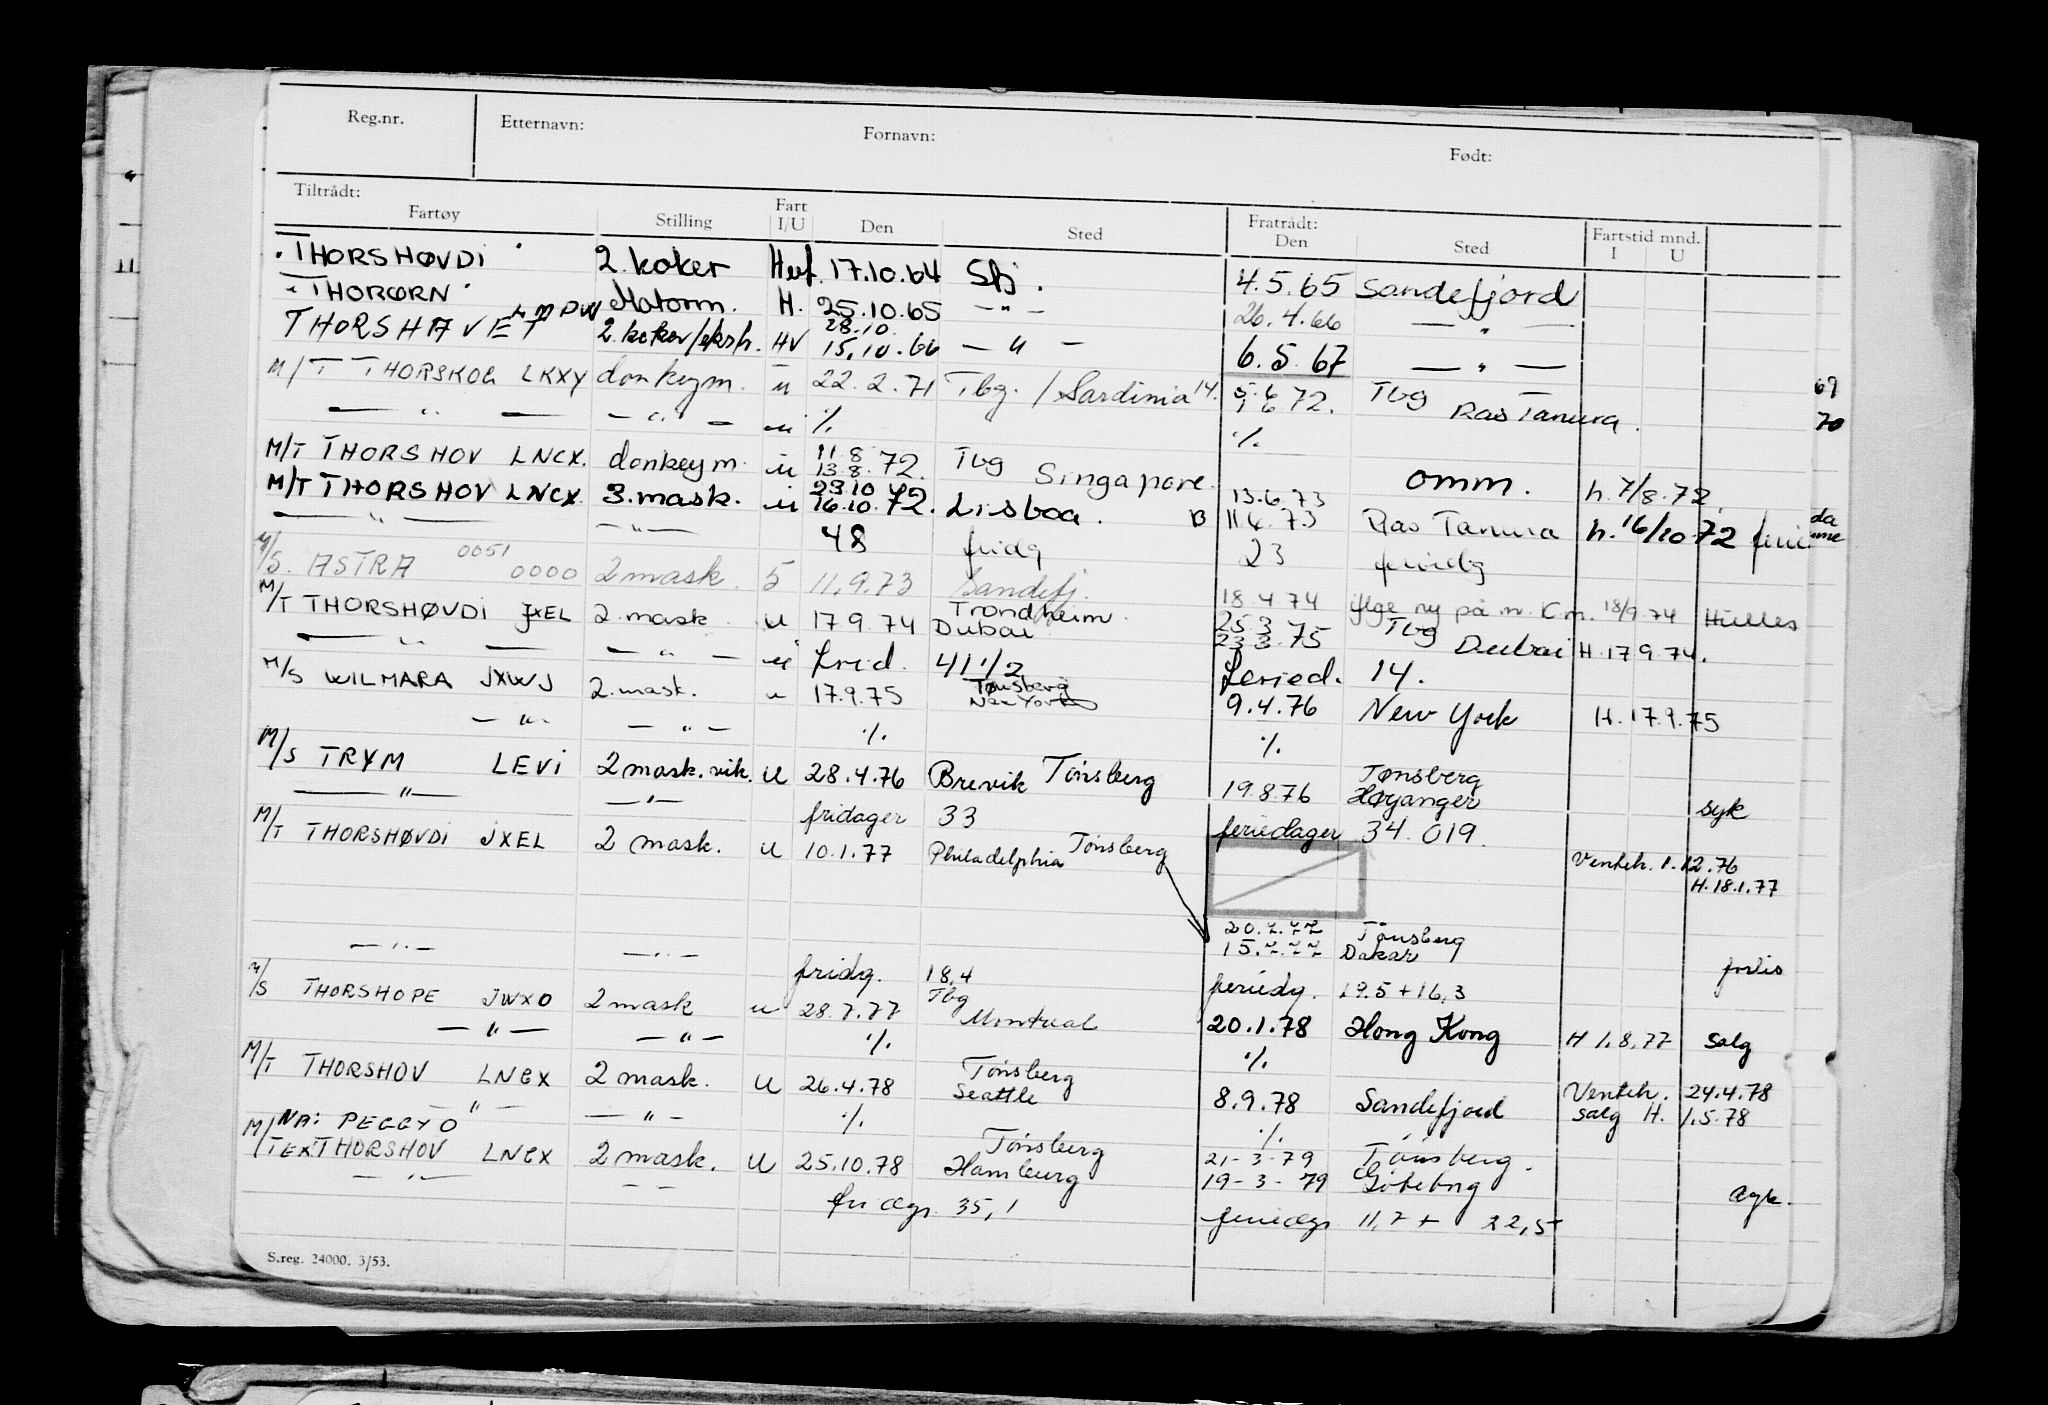 Reg.nr. Etternavn: Fornavn: Født:
Tiltrådt: Fratrådt:
Fartøy Stilling Fart I/U Den Sted Den Sted Fartstid mnd. I U
THORSHØVDI 2. koker Hvf. 17.10.64 Sfj. 4.5.65 Sandefjord
THORØRN Motorm. H. 25.10.65 — " — 26.4.66 — " —
THORSHAVET LMPW 2. koker/eksp. HV 28.10. 15.10.66 — " — 6.5.67 — " —
M/T THORSKOG LKXY donkeym. u 22.2.71 Tbg. / Sardinia 14. 5.6 1 6 72. Tbg Ras Tanura. 69
— " — — " — u % % 70
M/T THORSHOV LNCX. donkeym. u 11.8 13.8. 72. Tbg Singapore. omm. h. 7/8.72.
M/T THORSHOV LNCX 3. mask. u 23.10 16.10.72. Lisboa. B 13.6.73 11.6.73 Ras Tanura h. 16/10 72
— " — — " — 48 fridg 23 feridg
M/S. ASTRA 0051 0000 2 mask. 5 11.9.73 Sandefj. 18.4.74
M/T THORSHØVDI JXEL 2. mask. u 17.9.74 Trondheim. Dubai 25.3 23.3.75 Tbg Dubai H. 17.9.74.
— " — — " — u frid. 41 1/2 feried. 14.
M/S WILMARA JXWJ 2. mask. u 17.9.75 Tønsberg New York 9.4.76 New York H. 17.9.75
— " — — " — % %
M/S TRYM LEVI 2 mask. vik. u 28.4.76 Brevik Tönsberg 19.8.76 Tønsberg Høyanger syk
— " — — " — fridager 33 feriedager 34. 019.
M/T THORSHØVDI JXEL 2 mask. u 10.1.77 Philadelphia Tönsberg Venteh. 1.12.76
H. 18.1.77
20.7.77 Tönsberg
— " — — " — 15.7.77 Dakar forlis
fridg. 18,4 feriedg. 19.5 + 16,3
M/S THORSHOPE JWXO 2 mask u 28.7.77 Tbg Montreal 20.1.78 Hong Kong H 1.8.77 salg
— " — — " — % %
M/T THORSHOV LNCX 2 mask. U 26.4.78 Tönsberg Seattle 8.9.78 Sandefjord Venteh. 24.4.78
salg H. 1.5.78
— " — — " — % %
NA: PEGGY O
M/T EX THORSHOV LNCX 2 mask. U 25.10.78 Tönsberg Hamburg 21-3-79 Tönsberg.
— " — — — 19-3-79 Göteborg
fridgr 35,1 feriedgr 11,7 + 22,5
S.reg. 24000. 3/53.